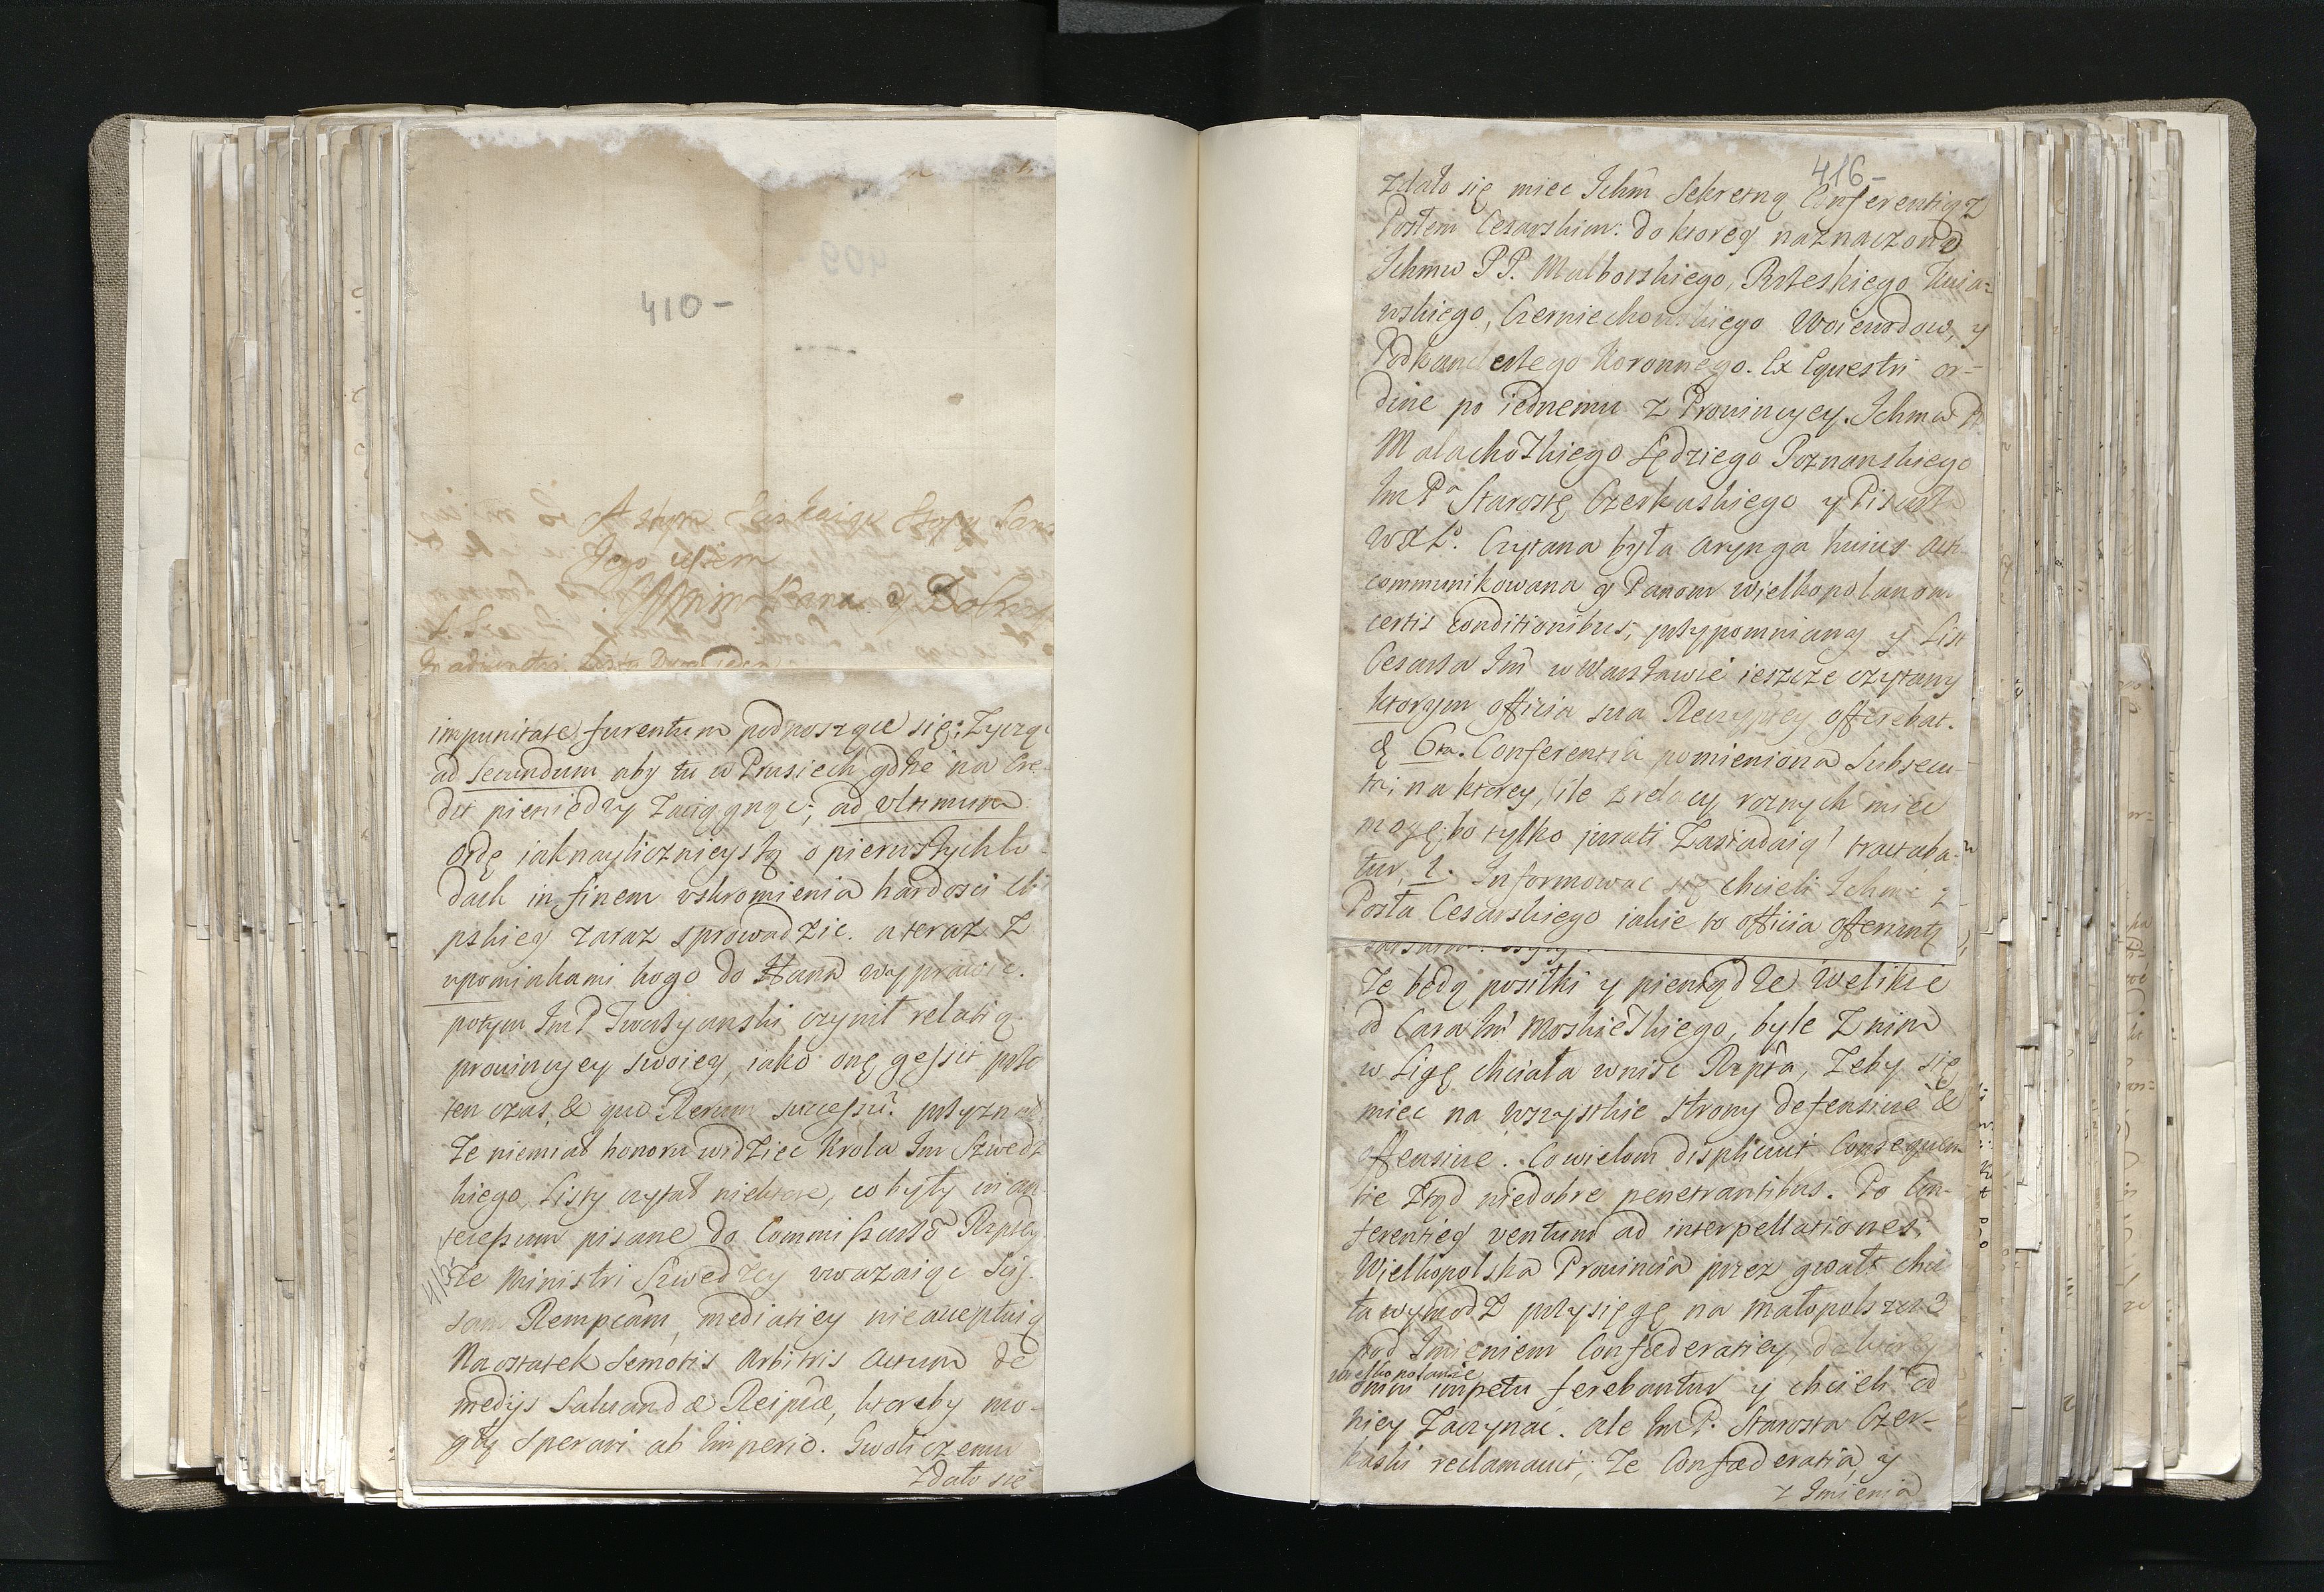 410-
A ſtym
Jego
Pana y Dobro
impunitate furentum podnoszące się; Zycząc
ad Secundum aby tu w Prusiech gdzie na Cre-
dit pieniędzy Zaciągnąc; ad vltimum
ordę iaknayliczniejszą o pierwszych lo-
dach in finem vskromienia hardosci Ch
pskiey zaraz sprowadzic. a teraz Z
upominkami kogo do Hana wyprawic.
potym ImP czynił relatią
prowincyey swoiey, iako onę gessit prze
ten czas, & quo Rerum successu. przyznał
Ze niemiał honoru widziec Krola Im Szwedz
kiego, Listy czytał niektore, co były in an
tecessum pisane do Commissarzo Rzptey
Ze Ministri Szwedzcy vwazaiąc Scis
sam Rempcam, mediatiey nieacceptuią
Naostatek Semotis Arbitris Actum de
medijs Saluandæ Reipcæ, ktoreby mo-
gły Sperari ab Imperio. Gwoli czemu
Zdało się
416-
Zdało się miec Ichm Sekretną Conferentią z
Posłem Cesarskim: do ktorey naznaczono
Ichmw PP. Malborskiego, Brzeskiego Kuia-
wskiego, Czerniechowskiego Woiewodow, y
Podkanclerzego Koronnego. Ex Equestri or-
dine po iednemu z Prowincyey. Ichmw P
Malachowskiego Sędziego Poznanskiego
Im Pa Starostę Czerkaskiego y Pisarz
WXL. Czytana była arynga huius
communikowana q Panom Wielkopolanom
certis conditionibus, przypomniany y List
Cesarza Im w Warszawie ieszcze czytany
ktorym officia sua Reipptey offerebat.
& 6ta. Conferentia pomieniona Subsecu-
ta, na ktorey, (ile z relacy roznych miec
mogę, bo tylko jurati Zasiadaią) tractaba-
tur, 1. Informowac się chcieli Ichmc z
Posła Cesarskiego iakie to officia offeruntę
Ze będą posiłki y pieniądze welikie
od Cara Im Moskiewskiego, byle Z nim
w Ligę chciała wnisc Rzpta, Zeby się
miec na wszystkie strony defensiue &
offensiue. Co wielom displicuit Consequen
tie Ztąd niedobre penetrantibus. Po Con-
ferentiey ventum ad interpellationes;
Wielkopolska Prowincia przez gwałt chcia
ła wymodz przysięgę na Małopolszcze
pod Imieniem Confœderatiey,
wielkopolanie
omni impetu ferebantur y chcieli od
niey Zaczynac. ale ImP. Starosta Czer-
kaski reclamauit, Ze Confœderatia y
z Imienia